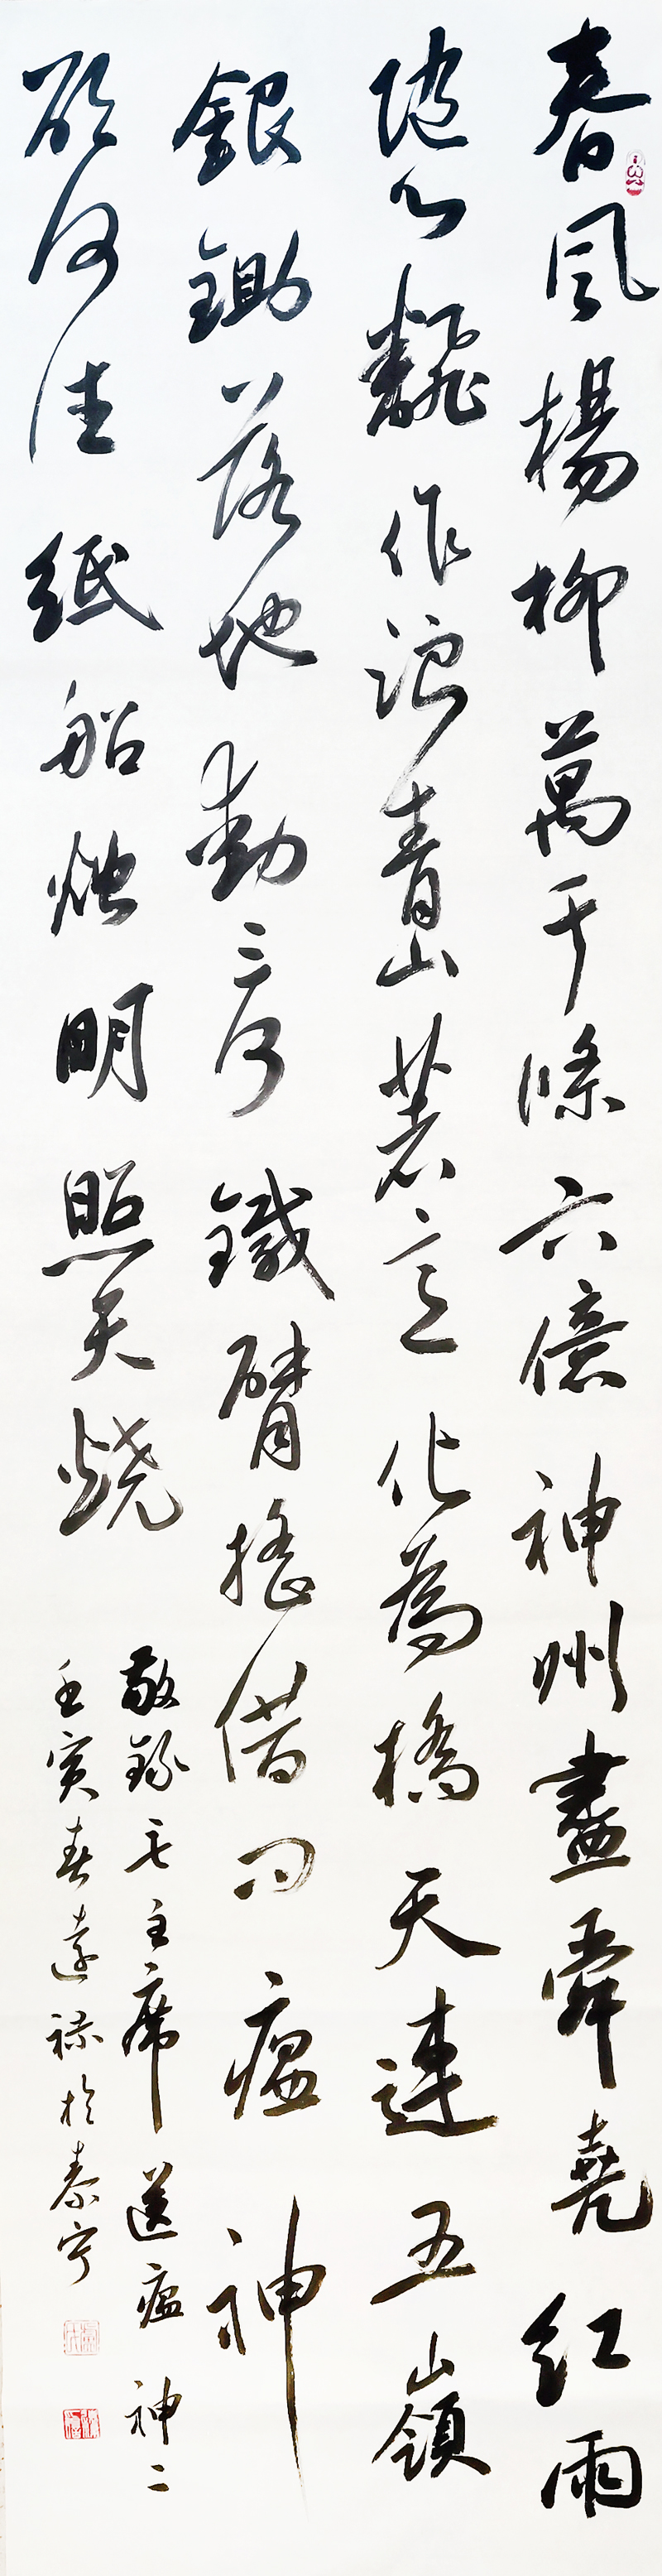 春風楊柳萬千條六億神州盡舜堯紅雨
隨心飜作浪青山著意化為橋天連五嶺
銀鋤落地動三河鐵臂搖借問瘟神
欲何往紙船烛明照天燒
敬錄毛主席送瘟神二
壬寅春遠祿於泰寧